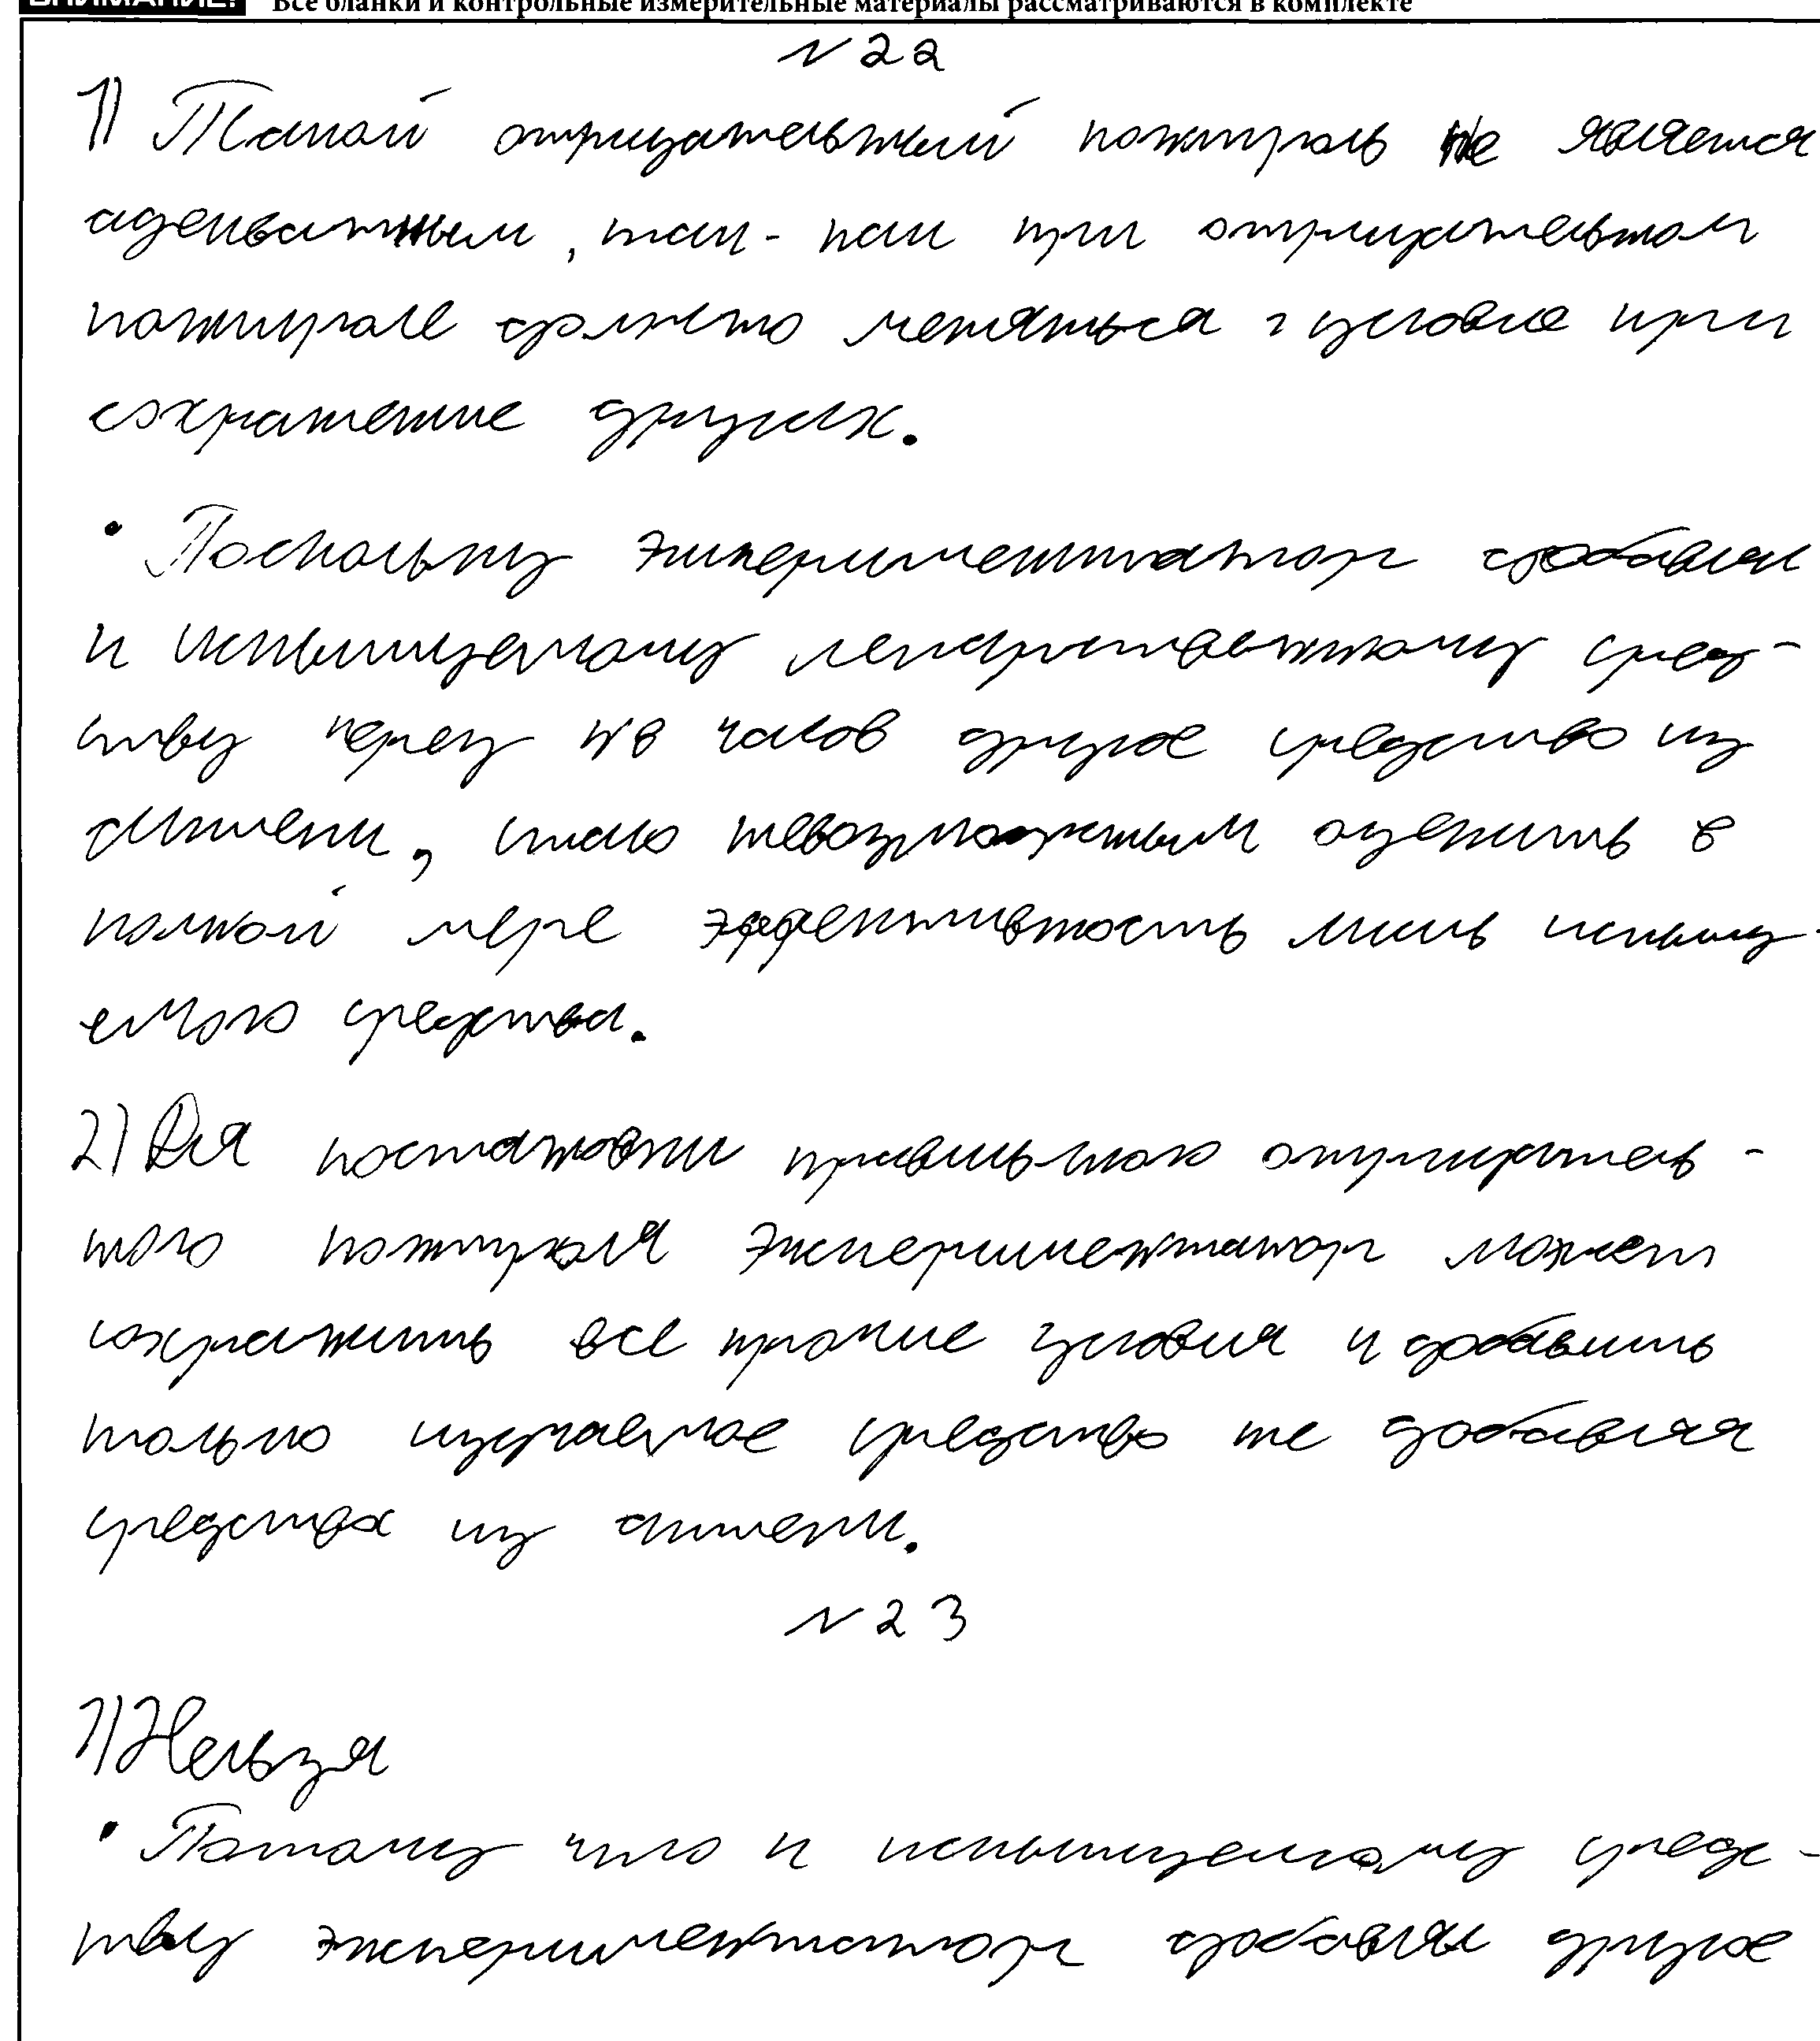 ВНИМАНИЕ! Все бланки и контрольные измерительные материалы рассматриваются в комплекте
№22
1) Такой отрицательный контроль не является
адекватным, так-как при отрицательном
контроле должно меняться 1 условие при
сохранение других.
• Поскольку экпериментатор добавил
к испытуемому лекарственному сред-
ству через 48 часов другое средство из
аптеки, стало невозможным оценить в
полной мере эффективность лишь испыту-
емого средства.
2) Для постановки правильного отрицатель-
ного контроля экспериментатор может
сохранить все прочие условия и добавить
только изучаемое средство не добавляя
средства из аптеки.
№23
1) Нельзя
• Потому что к испытуемому средс-
тву экспериментатор добавил другое